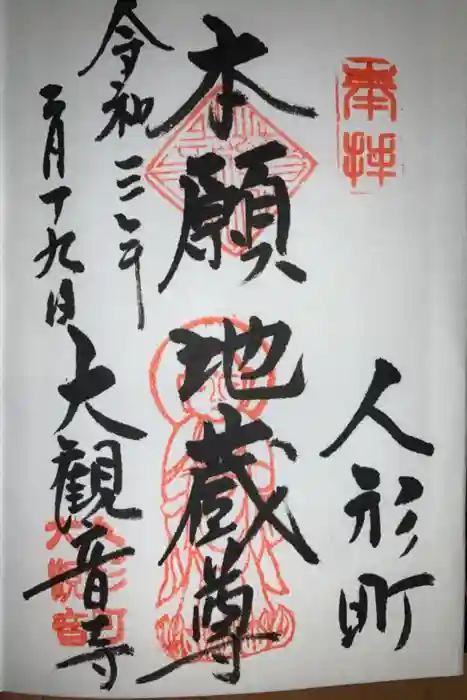 奉拝
人形町
本願地蔵尊
令和三年
二月十九日
大観音寺